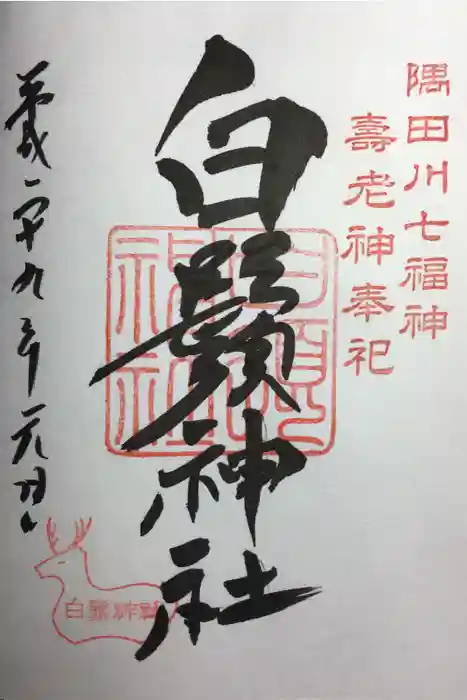 隅田川七福神
壽老神奉祀
白鬚神社
平成二十九年元月
白鬚神社